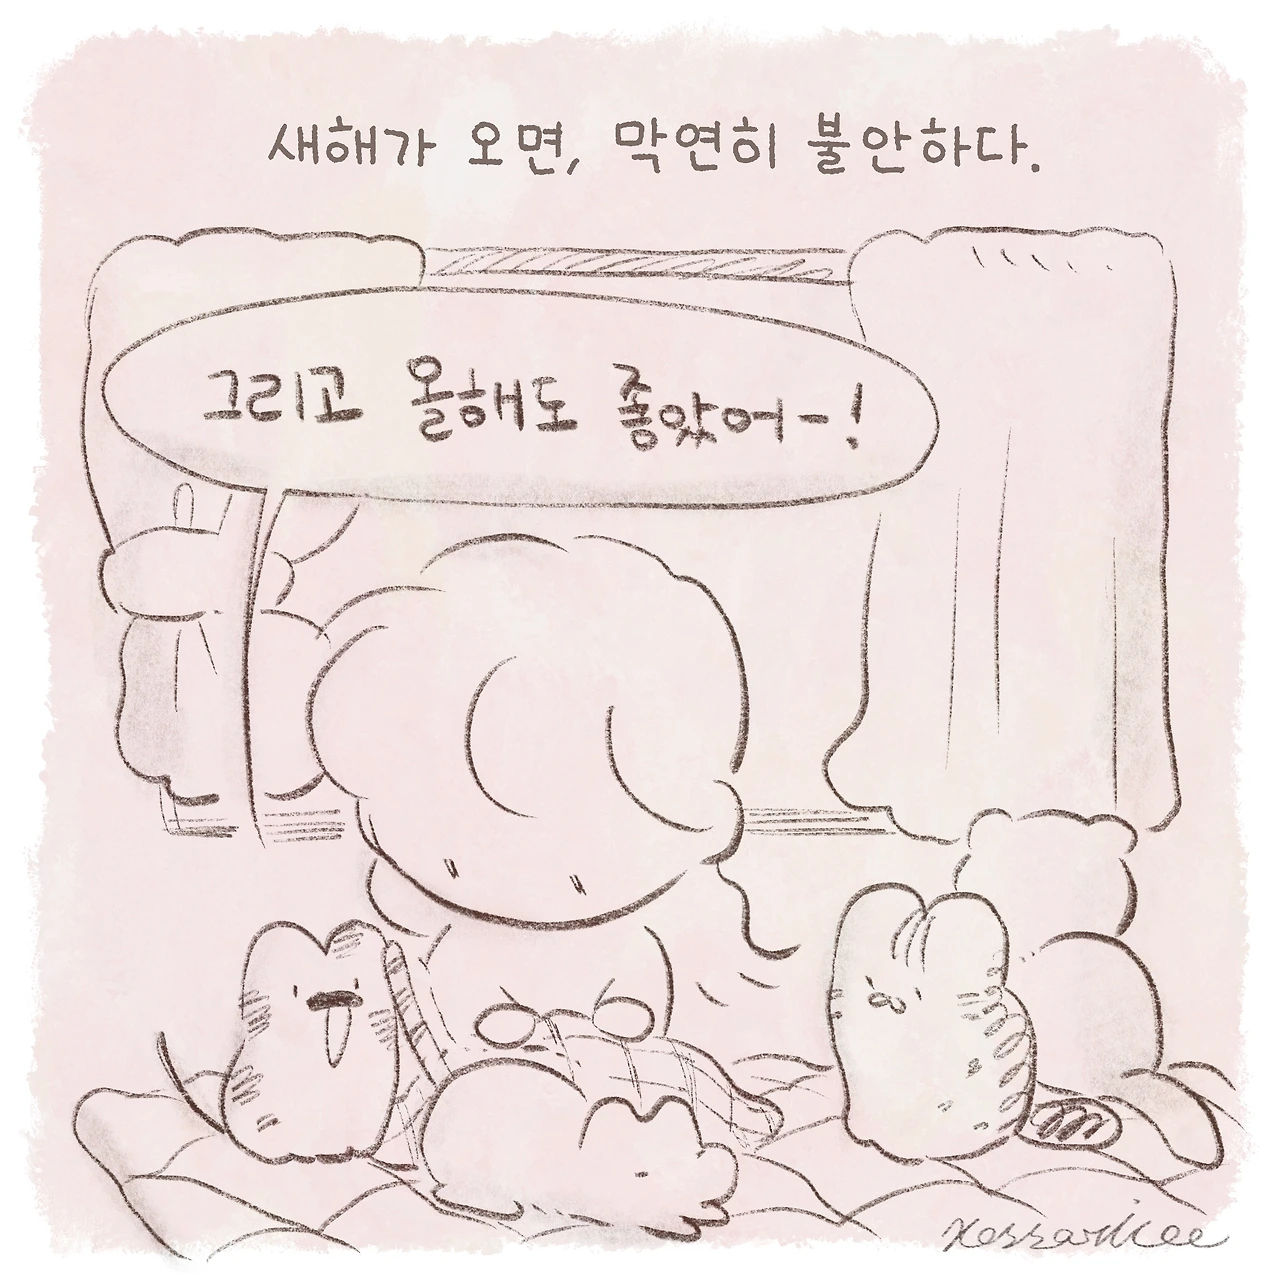 새해가 오면, 막연히 불안하다.
그리고 올해도 좋았어-!